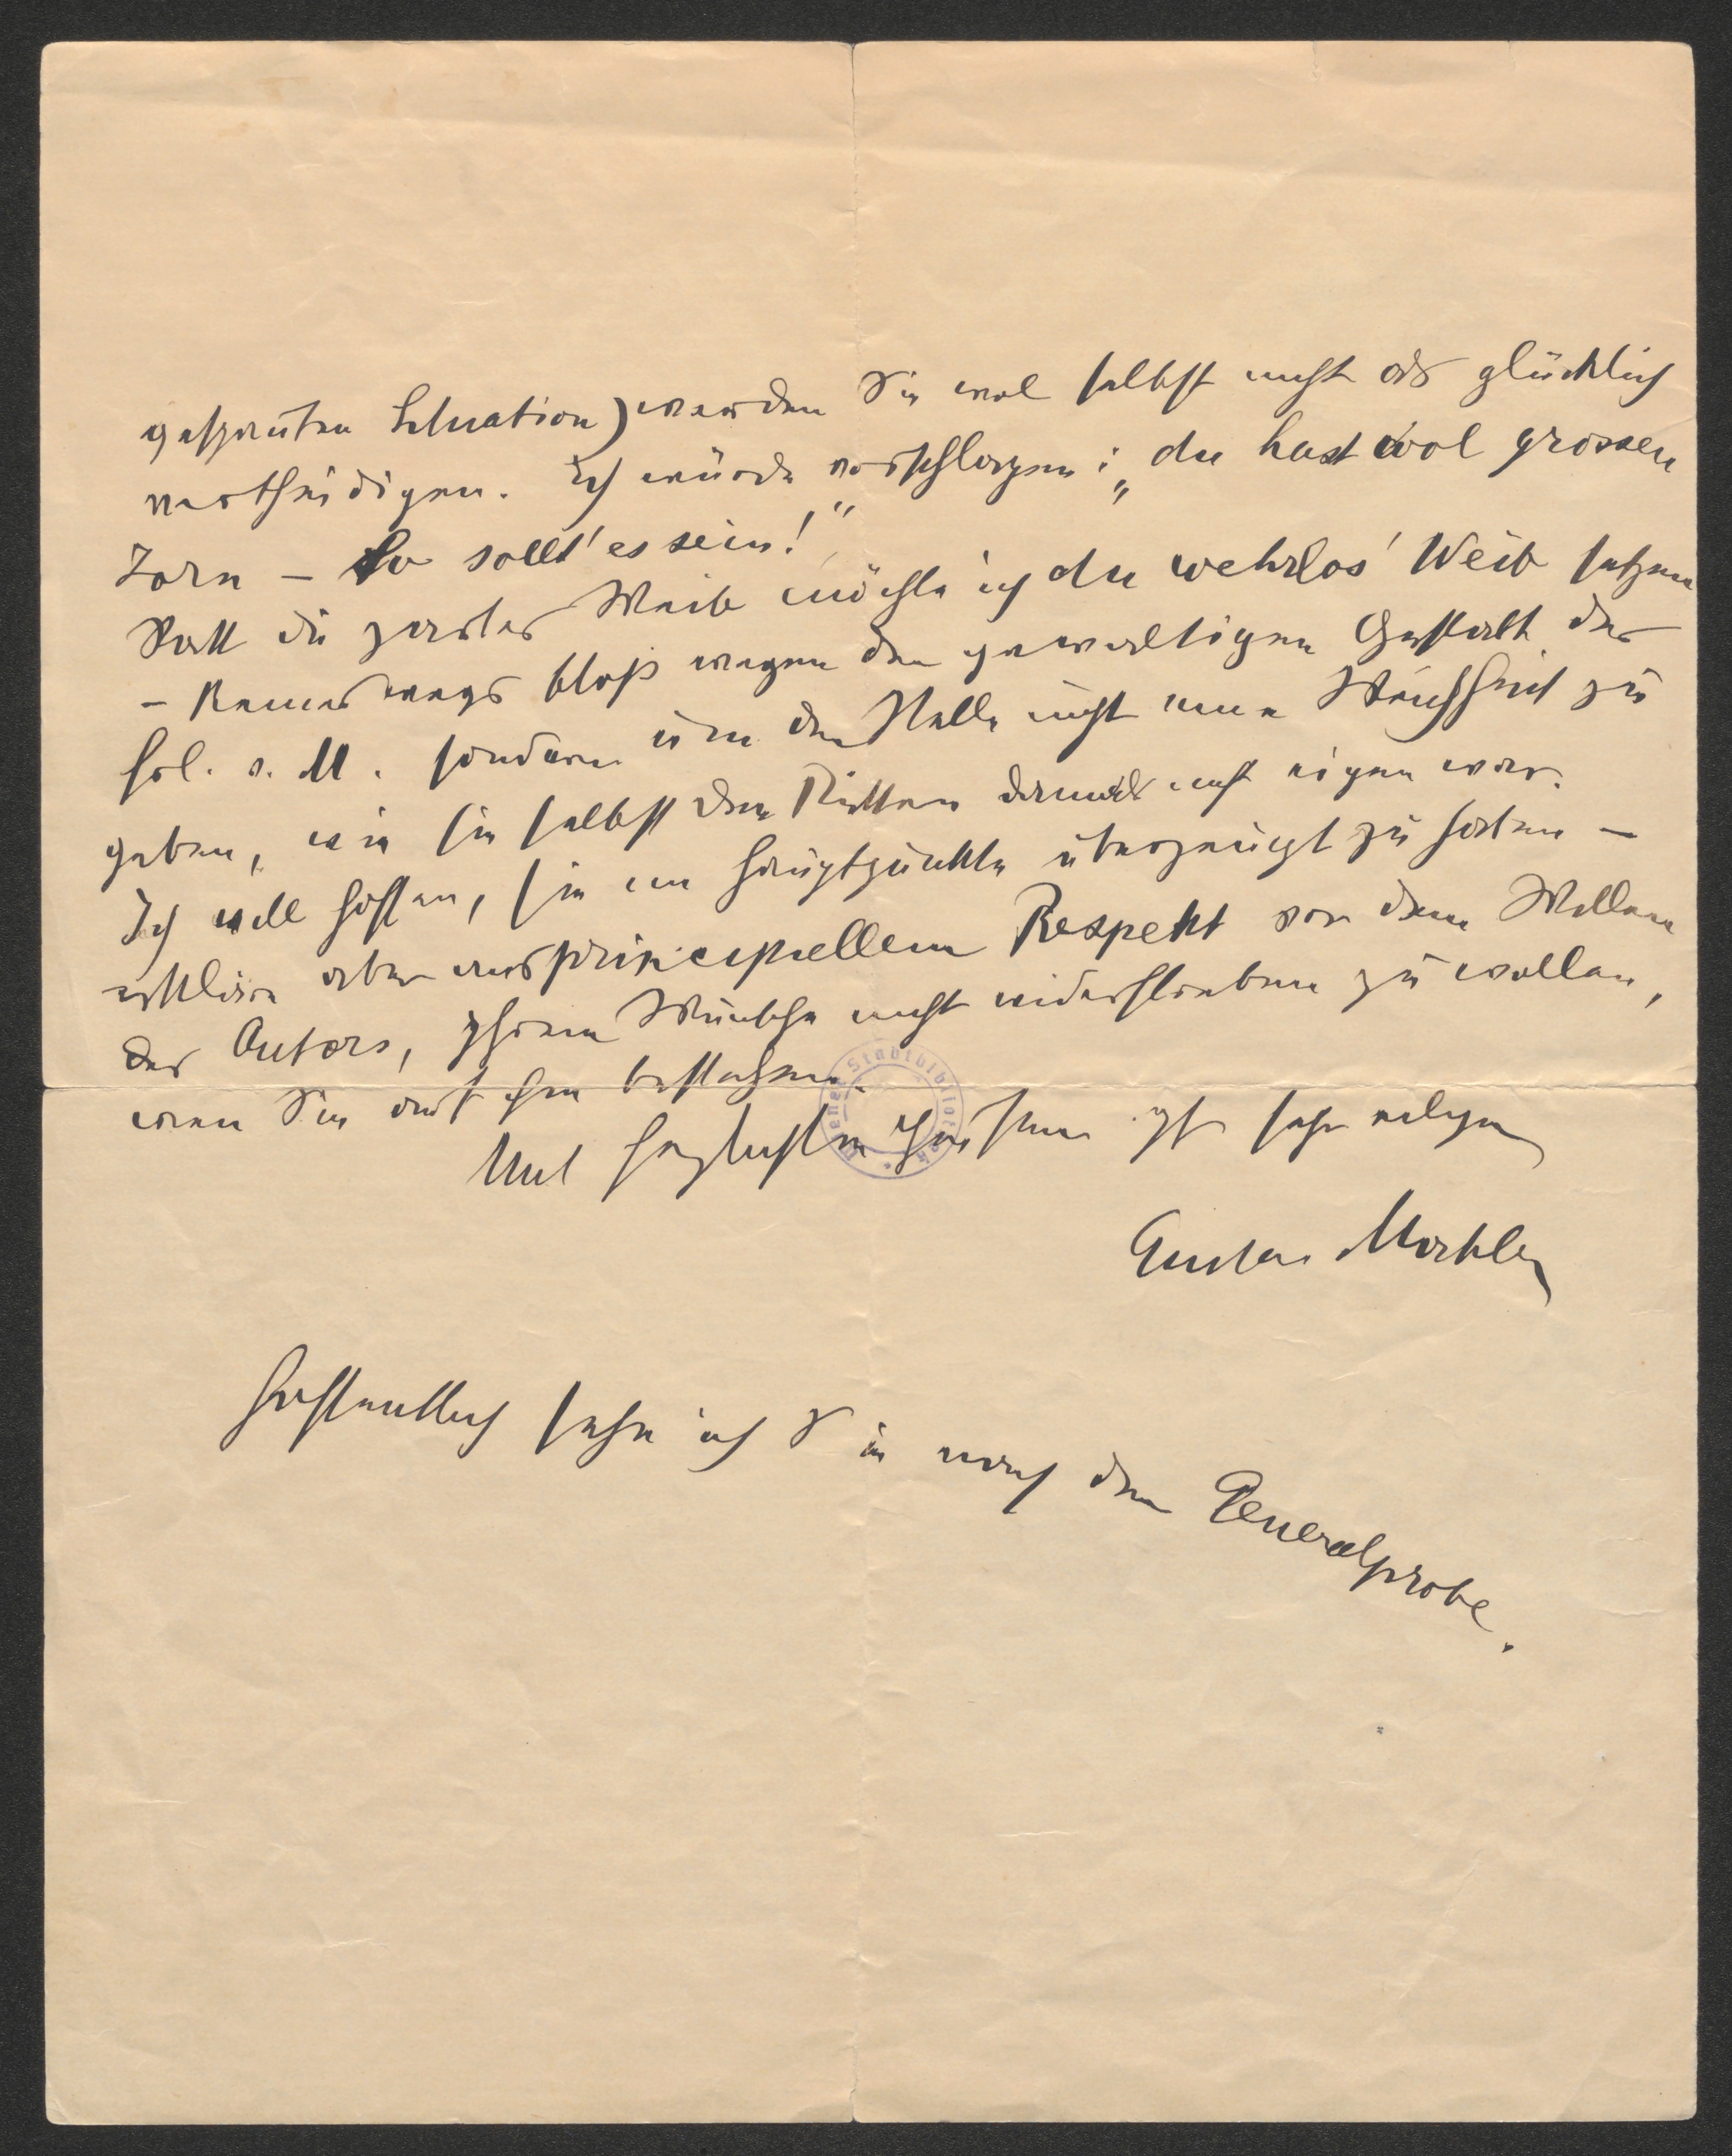 gespannten Situation) werden Sie wol selbst nicht als glücklich
vertheidigen. Ich würde vorschlagen: „du hast wol grossen
Zorn – So sollt' es sein!“
Statt du zartes Weib möchte ich du wehrlos' Weib setzen
– keineswegs bloß wegen der gewaltigen Gestalt der
Frl. v. M. sondern um der Stelle nicht eine Weichheit zu
geben, wie sie selbst den Rittern damals nicht eigen war.
Ich will hoffen, Sie im Hauptpunkte überzeugt zu haben –
erkläre aber aus principiellem Respekt vor dem Willen
des Autors, Ihrem Wunsche nicht widerstreben zu wollen,
wenn Sie auf ihm bestehen.
Mit herzlichsten Grüßen Ihr sehr eiliger
Gustav Mahler
Hoffentlich sehe ich Sie nach der Generalprobe.
Wiener Stadtbibliothek